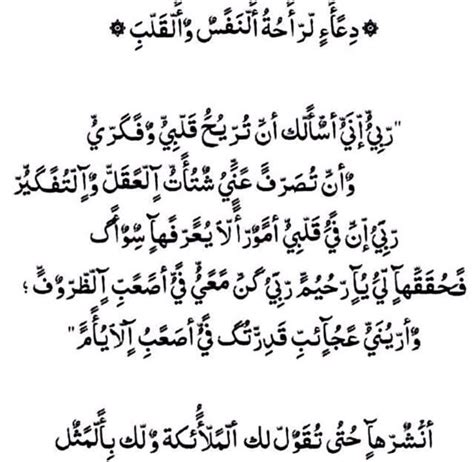 ۞ دِعًأَءٍ لَرٌأَحُةُ أُلَنَفَسٌ وٌأُلَقَلَبَ ۞
"رَبِيُ إنَيُ أسًأَلَك أنَ تٌرَيُحُ قَلَبِيُ وٌفَكَرَيُ
وٌأنَ تٌصّرَفَ عًنَيُ شُتٌأُتٌ آلَعًقَلَ وٌآلَتٌفَكَيُرَ
رَبِيُ إنَ فَيُ قَلَبِيُ أمَوٌرَأَ لآَ يُعًرَفَهآ سِوٌأَگ
فَحُقَقَهآ لَيُ يُآ رَحُيُمَ رَبِيُ كنَ مَعًيُ فَيُ أصّعًبَ آلَظَرَوٌفَ ؛
وٌأرَيُنَيُ عًجَآئبَ قَدِرَتٌگ فَيُ أصّعًبَ آلآيُأَمَ"
أنَشُرَهآ حُتٌى تٌقَوٌلَ لَك ألَمَلَأئكة وٌلَك بِألَمَثًلَ